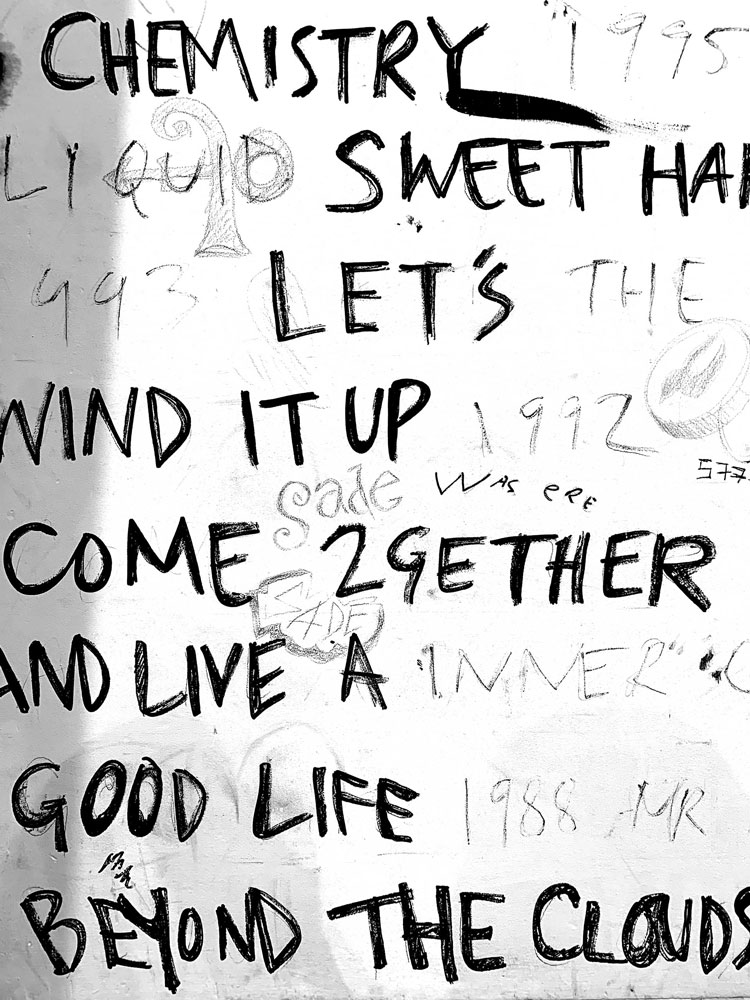 CHEMISTRY "1995
LIQUID SWEET HA
1993 LET'S THE
WIND IT UP 1992
577
Sade WAS ERE
COME 2GETHER
SADE
AND LIVE A "INNER"
GOOD LIFE 1988 MR
BEYOND THE CLOUDS